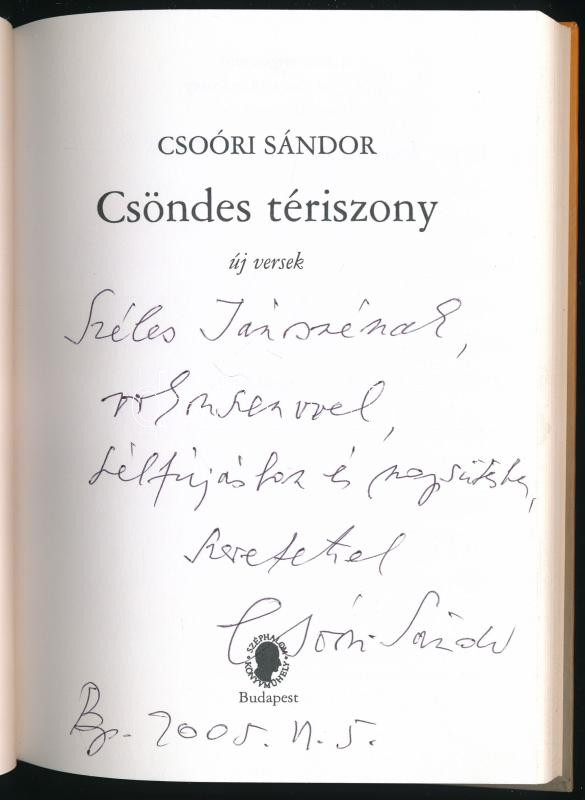 CSOÓRI SÁNDOR
Csöndes tériszony
új versek
Széles Jánosnénak,
rokonszenvvel,
szélfújásban és napsütésben,
szeretettel
Csoóri Sándor
SZÉPHALOM KÖNYVMŰHELY
Budapest
Bp. 2005. VI. 5.